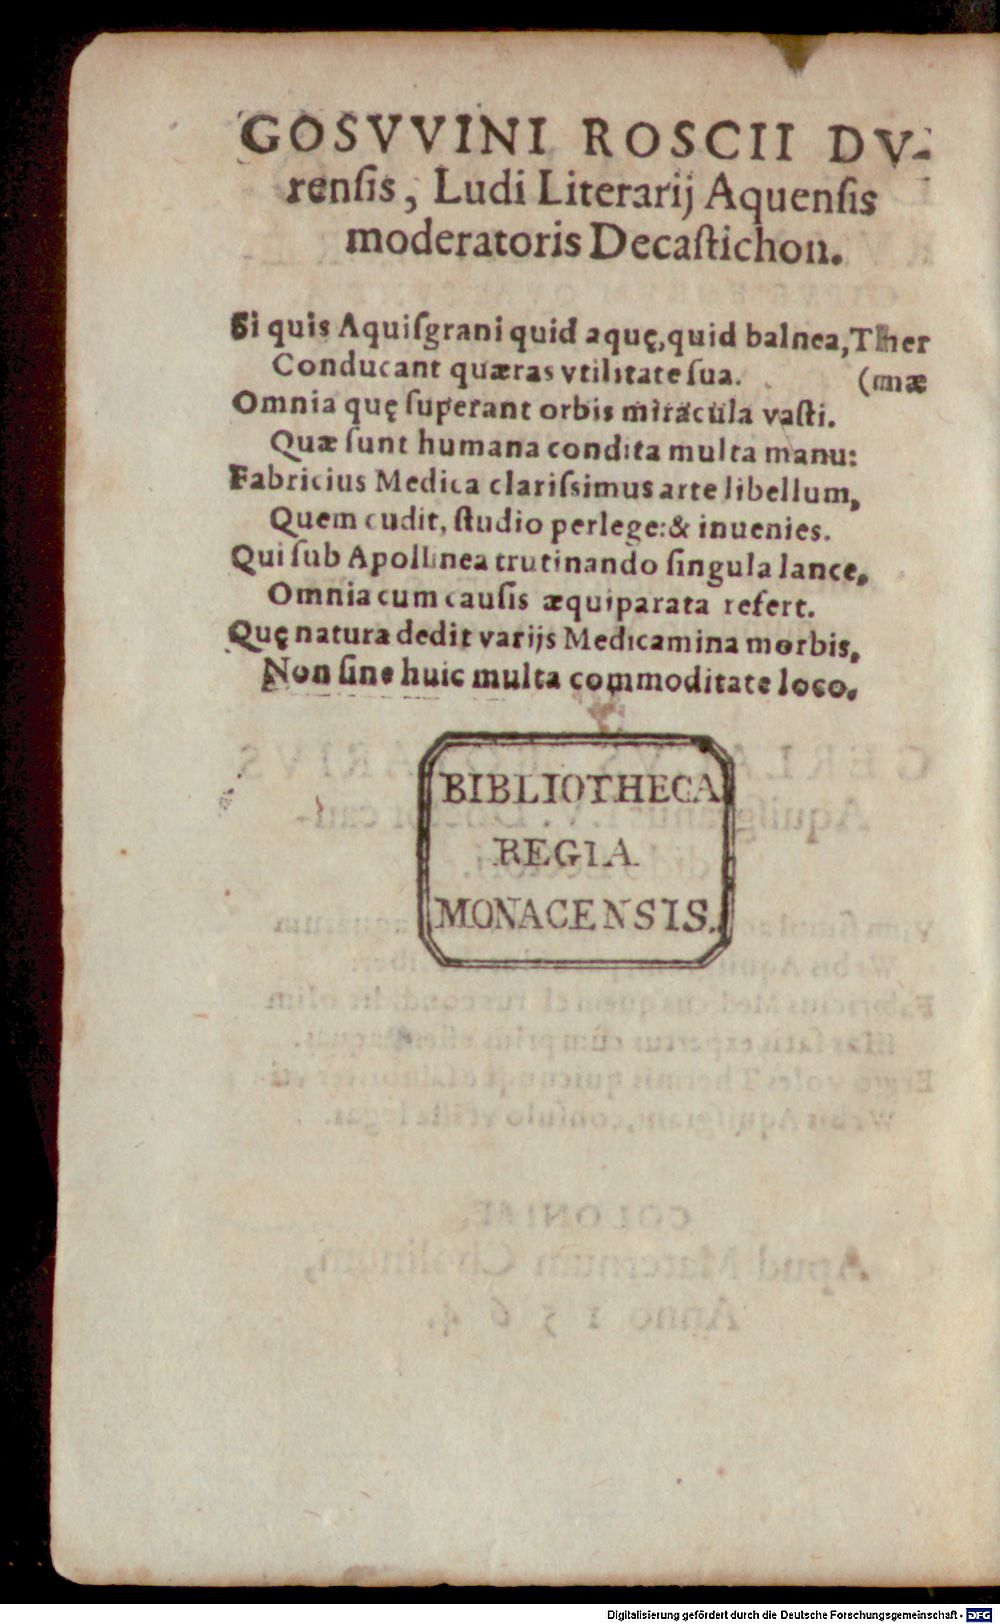 GOSVVINI ROSCII DV-
rensis, Ludi Literarij Aquensis
moderatoris Decastichon.
Si quis Aquisgrani quid aquę, quid balnea, Ther
Conducant quæras vtilitate sua. (mæ
Omnia quę superant orbis miracula vasti.
Quæ sunt humana condita multa manu:
Fabricius Medica clarissimus arte libellum,
Quem cudit, studio perlege: & inuenies.
Qui sub Apollinea trutinando singula lance,
Omnia cum causis æquiparata refert.
Quę natura dedit varijs Medicamina morbis,
Non sine huic multa commoditate loco.
BIBLIOTHECA
REGIA
MONACENSIS.
Digitalisierung gefördert durch die Deutsche Forschungsgemeinschaft - DFG